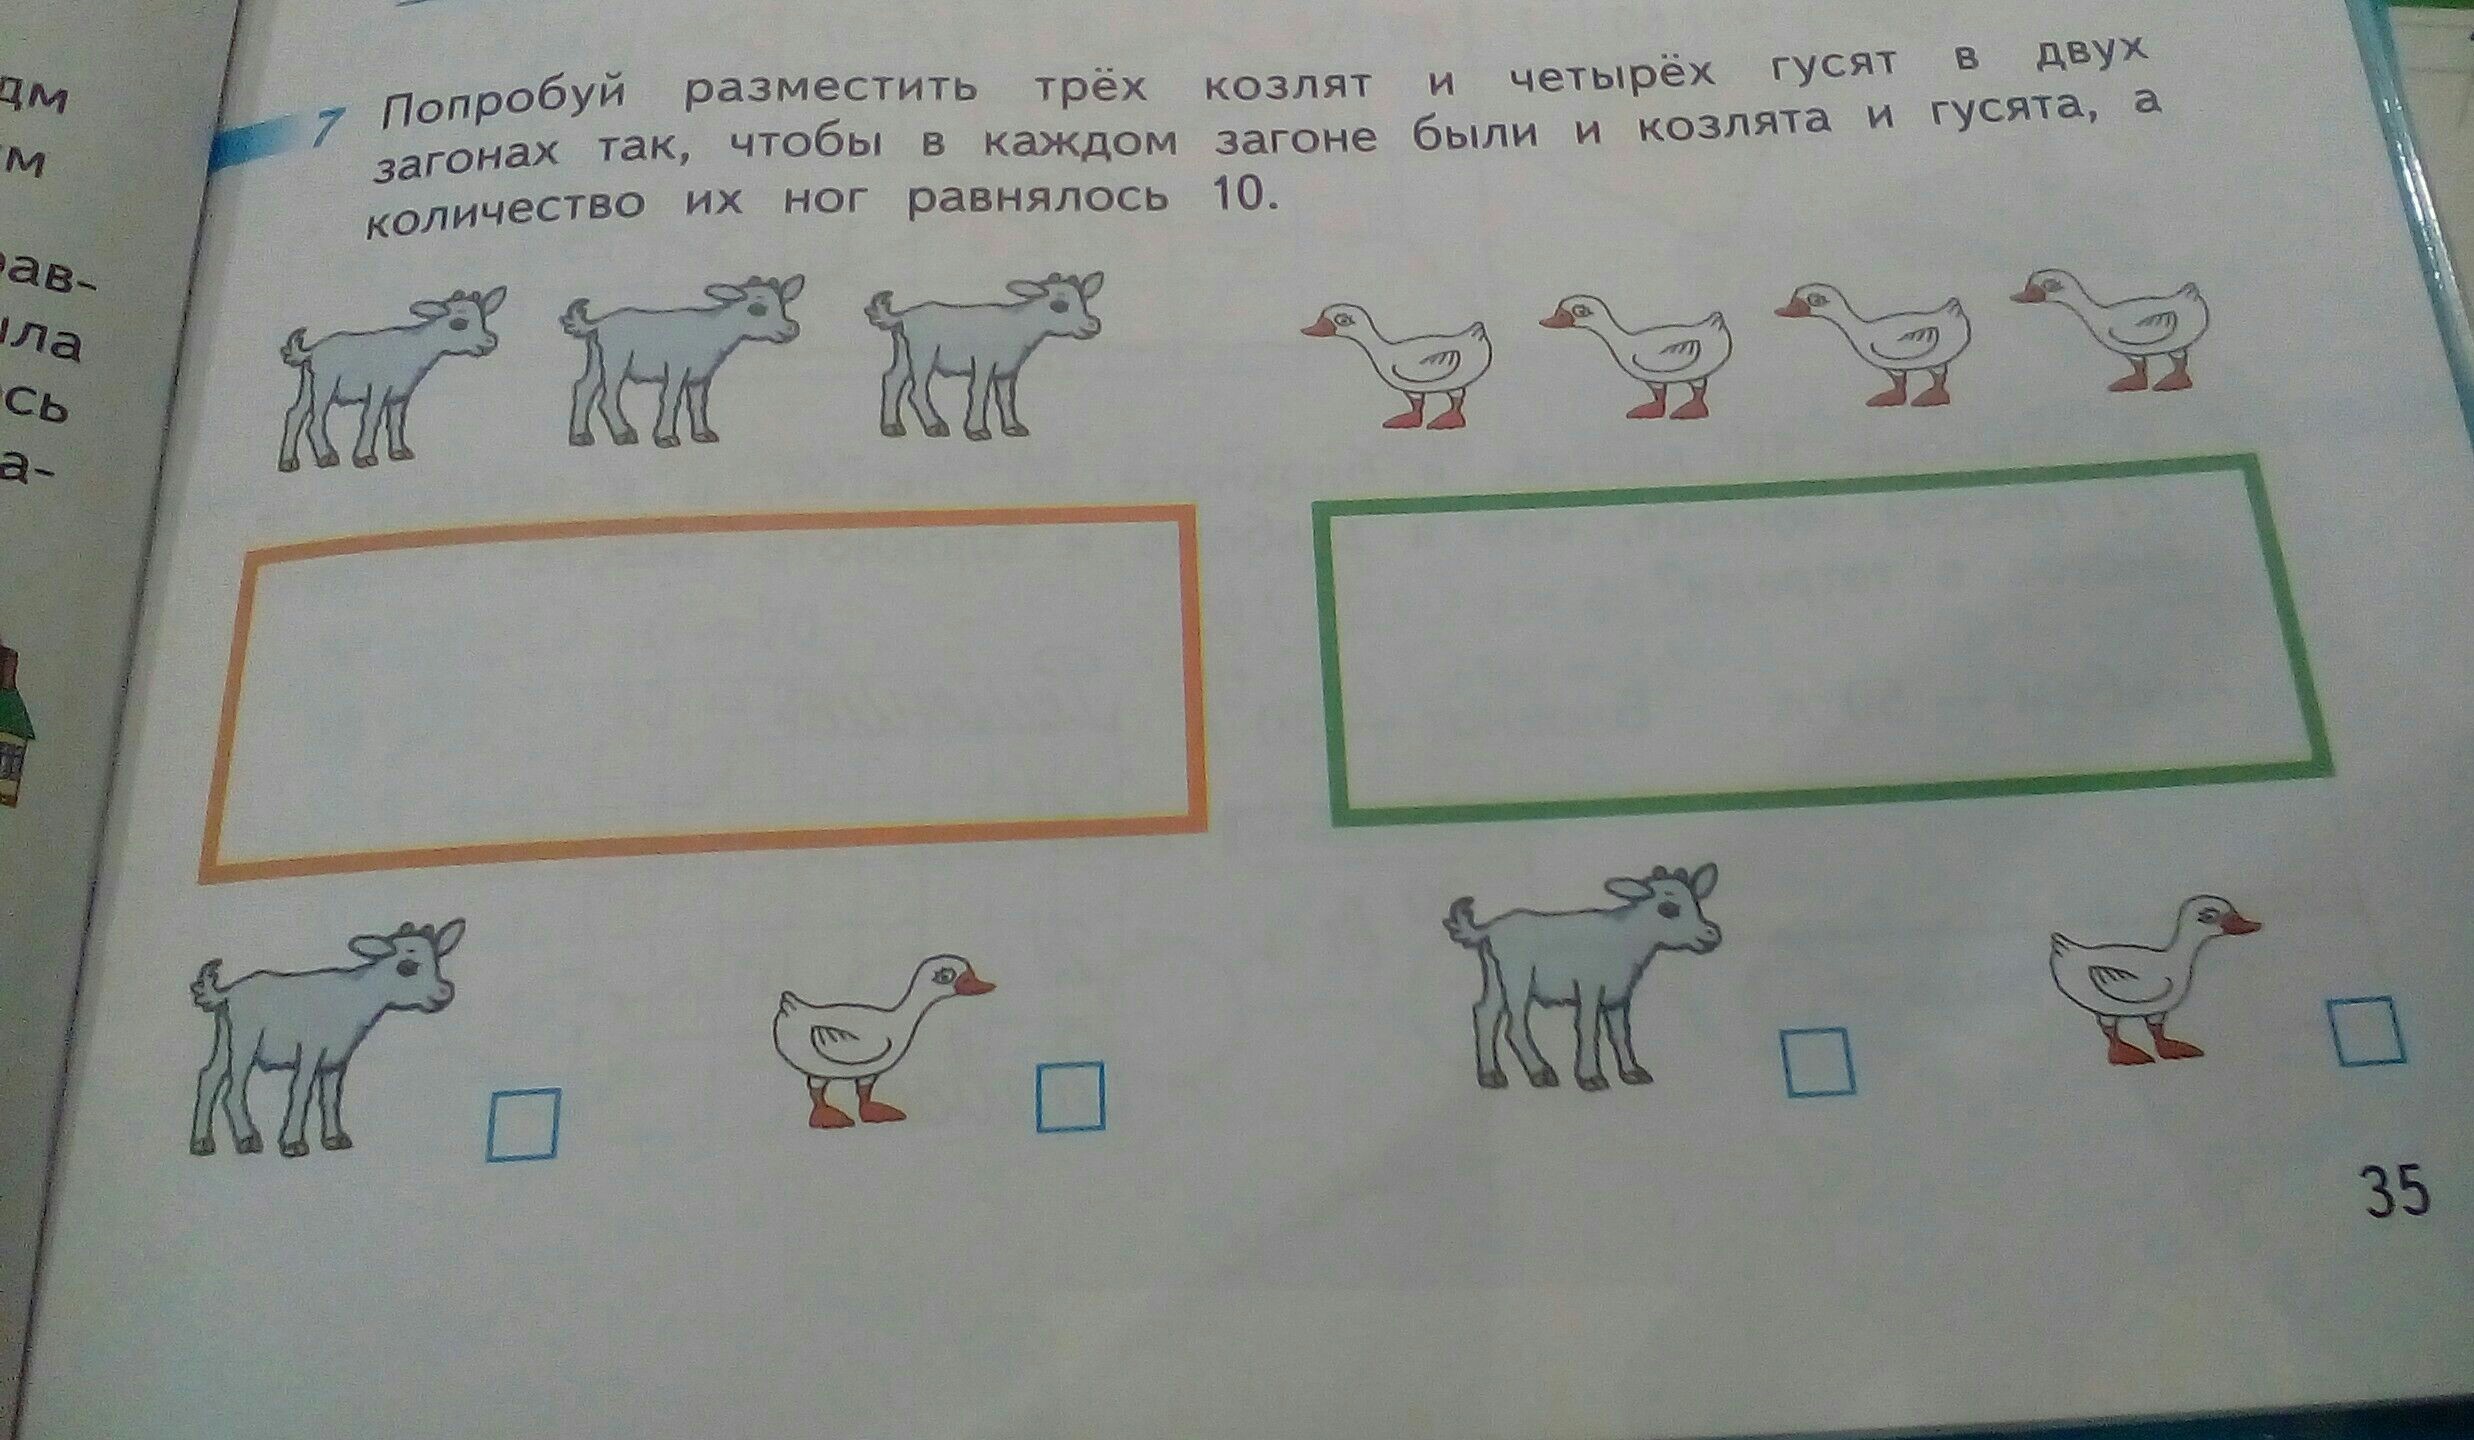 дм
м
рав-
ыла
сь
а-
7 Попробуй разместить трёх козлят и четырёх гусят в двух
загонах так, чтобы в каждом загоне были и козлята и гусята, а
количество их ног равнялось 10.
35